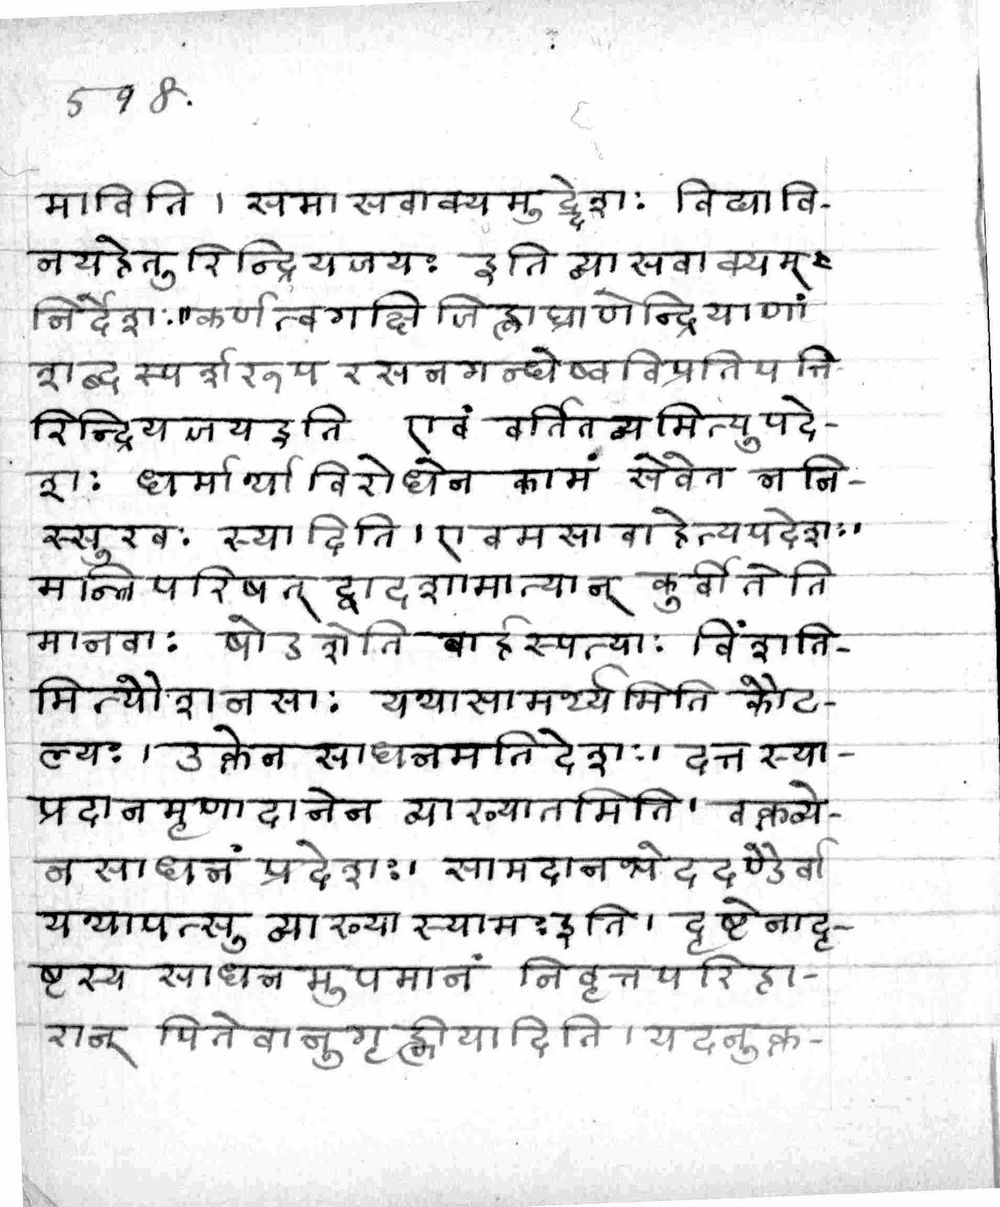 598.
माविति । समासवाक्यमुद्देशः विद्यावि-
नयहेतुरिन्द्रियजयः इति व्यासवाक्यम्
निर्देशः॥ कर्णत्वगक्षिजिह्वाघ्राणेन्द्रियाणां
शब्दस्पर्शरूपरसनगन्धेष्वविप्रतिपत्ति
रिन्द्रियजयइति एवं वर्तितव्यमित्युपदे-
शः धर्मार्थाविरोधेन कामं सेवेत ननि-
स्सुखः स्यादिति । एवमसावाहेत्यपदेशः।
मन्त्रिपरिषत् द्वादशामात्यान् कुर्वीतेति
मानवाः षोडशेति बार्हस्पत्याः विंशति-
मित्यौशनसाः यथासामर्थ्यमिति कौट-
ल्यः। उक्तेन साधनमतिदेशः। दत्तस्या-
प्रदानमृणादानेन व्याख्यातमिति। वक्तव्ये-
न साधनं प्रदेशः। सामदानभेददण्डैर्वा
यथापत्सु व्याख्यास्यामःइति। दृष्टेनादृ-
ष्टस्य साधनमुपमानं निवृत्तपरिहा-
रान् पितेवानुगृह्णीयादिति । यदनुक्त-